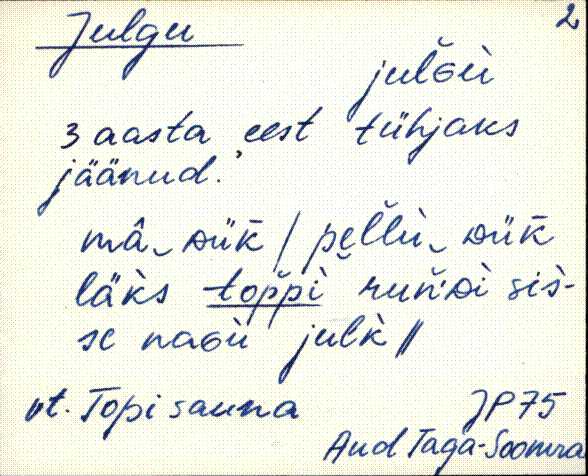 Julgu 2
julGu̬
3 aasta eest tühjaks
jäänud.
mâ‿ Dük / pelli‿ Dük
läks toppi runDi sis-
se naGu julk //
vt. Topi sauna JP 75
And Taga-Soomra